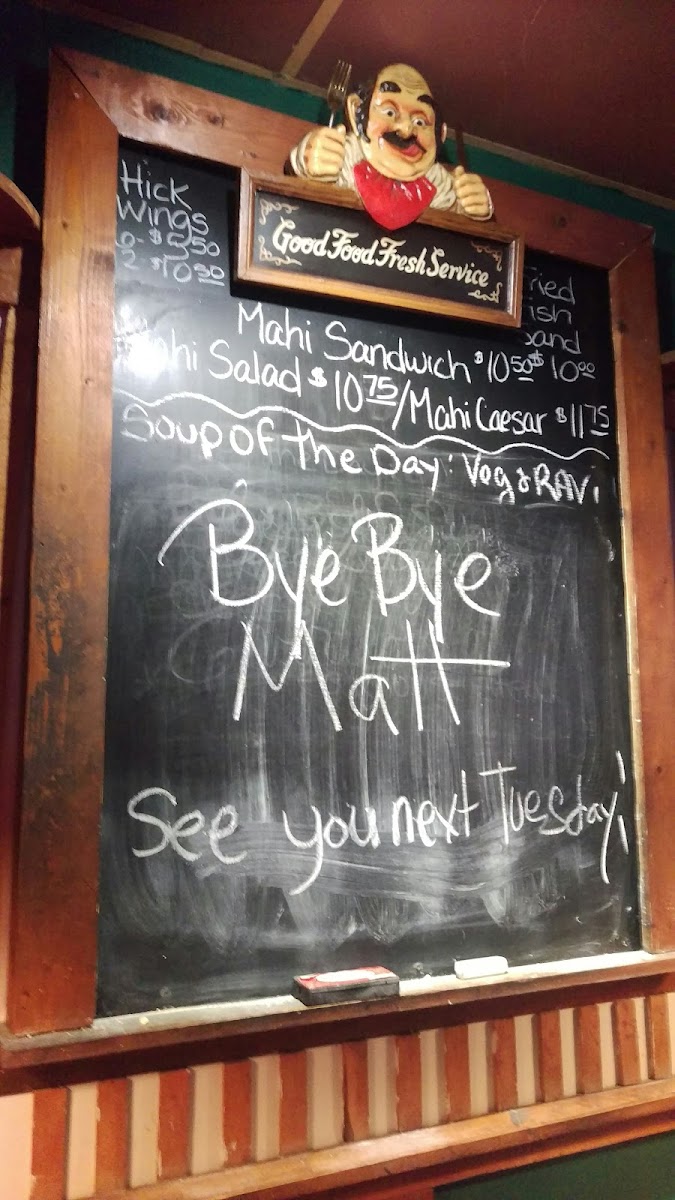 Good Food Fresh Service
Hick
Wings
6- $5.50
2- $10.50
ried
ish
Sand
$10.00
Mahi Sandwich $10.50
hi Salad $10.75/Mahi Caesar $11.75
Soup of the Day: Veg & RAVi
Bye Bye
Matt
See you next Tuesday!